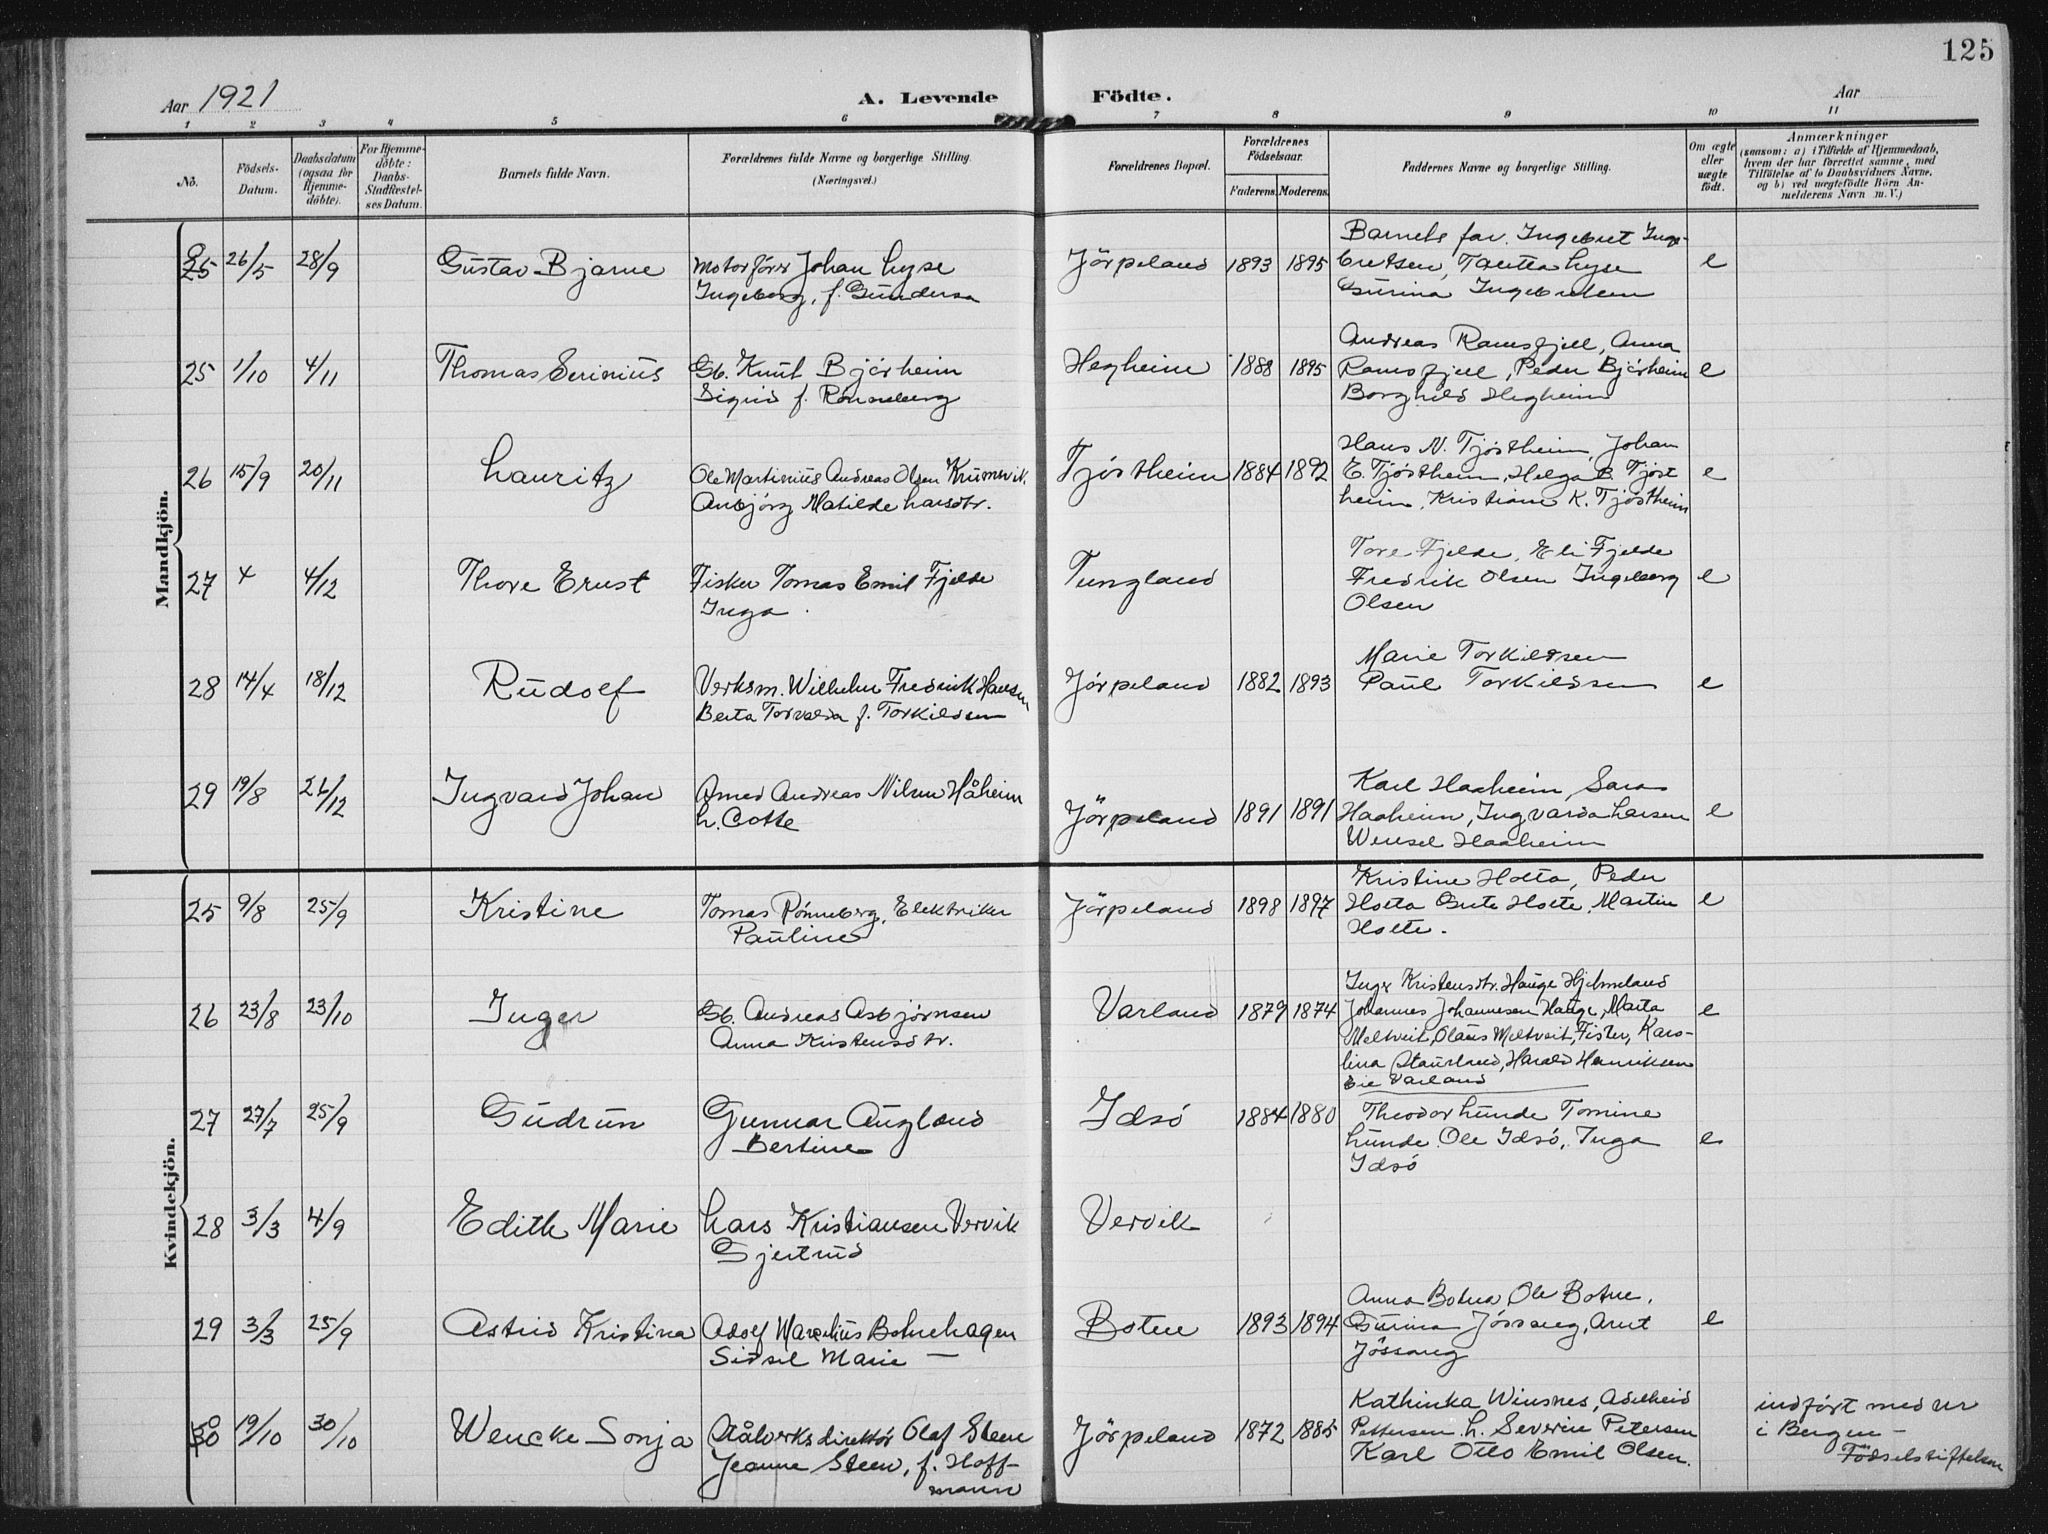 125
Aar 1921
A. Levende Födte.
Aar
1 2 3 4 5 6 7 8 9 10 11
No.
Födsels-Datum.
Daabsdatum (ogsaa for Hjemmedöbte).
For Hjemmedöbte: Daabs-Stadfæstelses Datum.
Barnets fulde Navn.
Forældrenes fulde Navne og borgerlige Stilling.
(Næringsvei.)
Forældrenes Bopæl.
Forældrenes Födselsaar.
Faderens. Moderens.
Faddernes Navne og borgerlige Stilling.
Om ægte eller uægte födt.
Anmærkninger
(saasom: a) i Tilfælde af Hjemmedaab, hvem der har forrettet samme, med Tilföielse af to Daabsvidners Navne, og b) ved uægtefödte Börn Anmelderens Navn m. V.)
Mandkjön.
26/5 28/9 Gustav Bjarne
Motorfører Johan Lyse
Ingeborg, f. Gundersen
Jörpeland 1893 1895
Barnets far. Ingebret Inge-
bretsen, Lyse
Gurina Ingebretsen
e
25 1/10 4/11 Thomas Serinius
Gb. Knut Bjørheim
Sigrid f. Rønneberg
Hegheim 1888 1895
Andreas Ramsfjell, Anna
Ramsfjell, Peder Bjørheim
Borghild Hegheim
e
26 15/9 20/11 Lauritz
Ole Martinius Andreas Olsen Krumsvik.
Anbjörg Matilde Larsdtr.
Tjøstheim 1884 1892
Hans N. Tjøstheim, Johan
E. Tjøstheim, Helga B. Tjøst
heim, Kristiane K. Tjøstheim
e
27 4 4/12 Thore Ernst
Fisker Tomas Emil Fjelde
Inga
Tungland
Tore Fjelde, Eli Fjelde
Fredrik Olsen Ingeborg
Olsen
e
28 14/4 18/12 Rudolf
Verksm. Wilhelm Fredrik Hansen
Berta Torvalda f. Torkildsen
Jørpeland 1882 1893
Marie Torkildsen
Paul Torkildsen
e
29 19/8 26/12 Ingvard Johan
Andreas Nilsen Håheim
L. Cotte
Jørpeland 1891 1891
Karl Haaheim, Sara
Haaheim, Ingvarda Larsen
Wensel Haaheim
e
Kvindekjön.
25 9/8 25/9 Kristine
Tomas Rønneberg, Elektriker
Pauline
Jörpeland 1898 1897
Kristine Holta, Peder
Holta Holte, Martin
Holte.
e
26 23/8 23/10 Inger
Gb. Andreas Asbjørnsen
Anna Kristensdtr.
Varland 1879 1874
Inger Kristensdtr. Hauge Hjelmeland
Johannes Johannesen Hauge, Marta
Meltveit, Olaus Meltveit, Fister, Karo-
lina Staurland, Harald Henriksen
Eie Varland
e
27 27/7 25/9 Gudrun
Gunnar Augland
Bertine
Idsø 1884 1880
Theodor Lunde Tomine
Lunde Ole Idsø, Inga
Idsø
e
28 3/3 4/9 Edith Marie
Lars Kristiansen Vervik
Gjertrud
Vervik
29 3/3 25/9 Astrid Kristina
Adolf Marselius Botnehagen
Sidsel Marie —
Botne 1893 1894
Anna Botne, Ole Botne.
Gurina Jøssang, Arnt
Jössang
e
30 19/10 30/10 Wencke Sonja
Stålverksdirektør Olaf Steen
Jeanne Steen, f. Hoff-
mann
Jørpeland 1872 1885
Kathinka Winsnes, Adelheid
Pettersen. L. Severin Petersen
Karl Otto Emil Olsen.
indført med nr
i Bergen —
Födselsstiftelsen